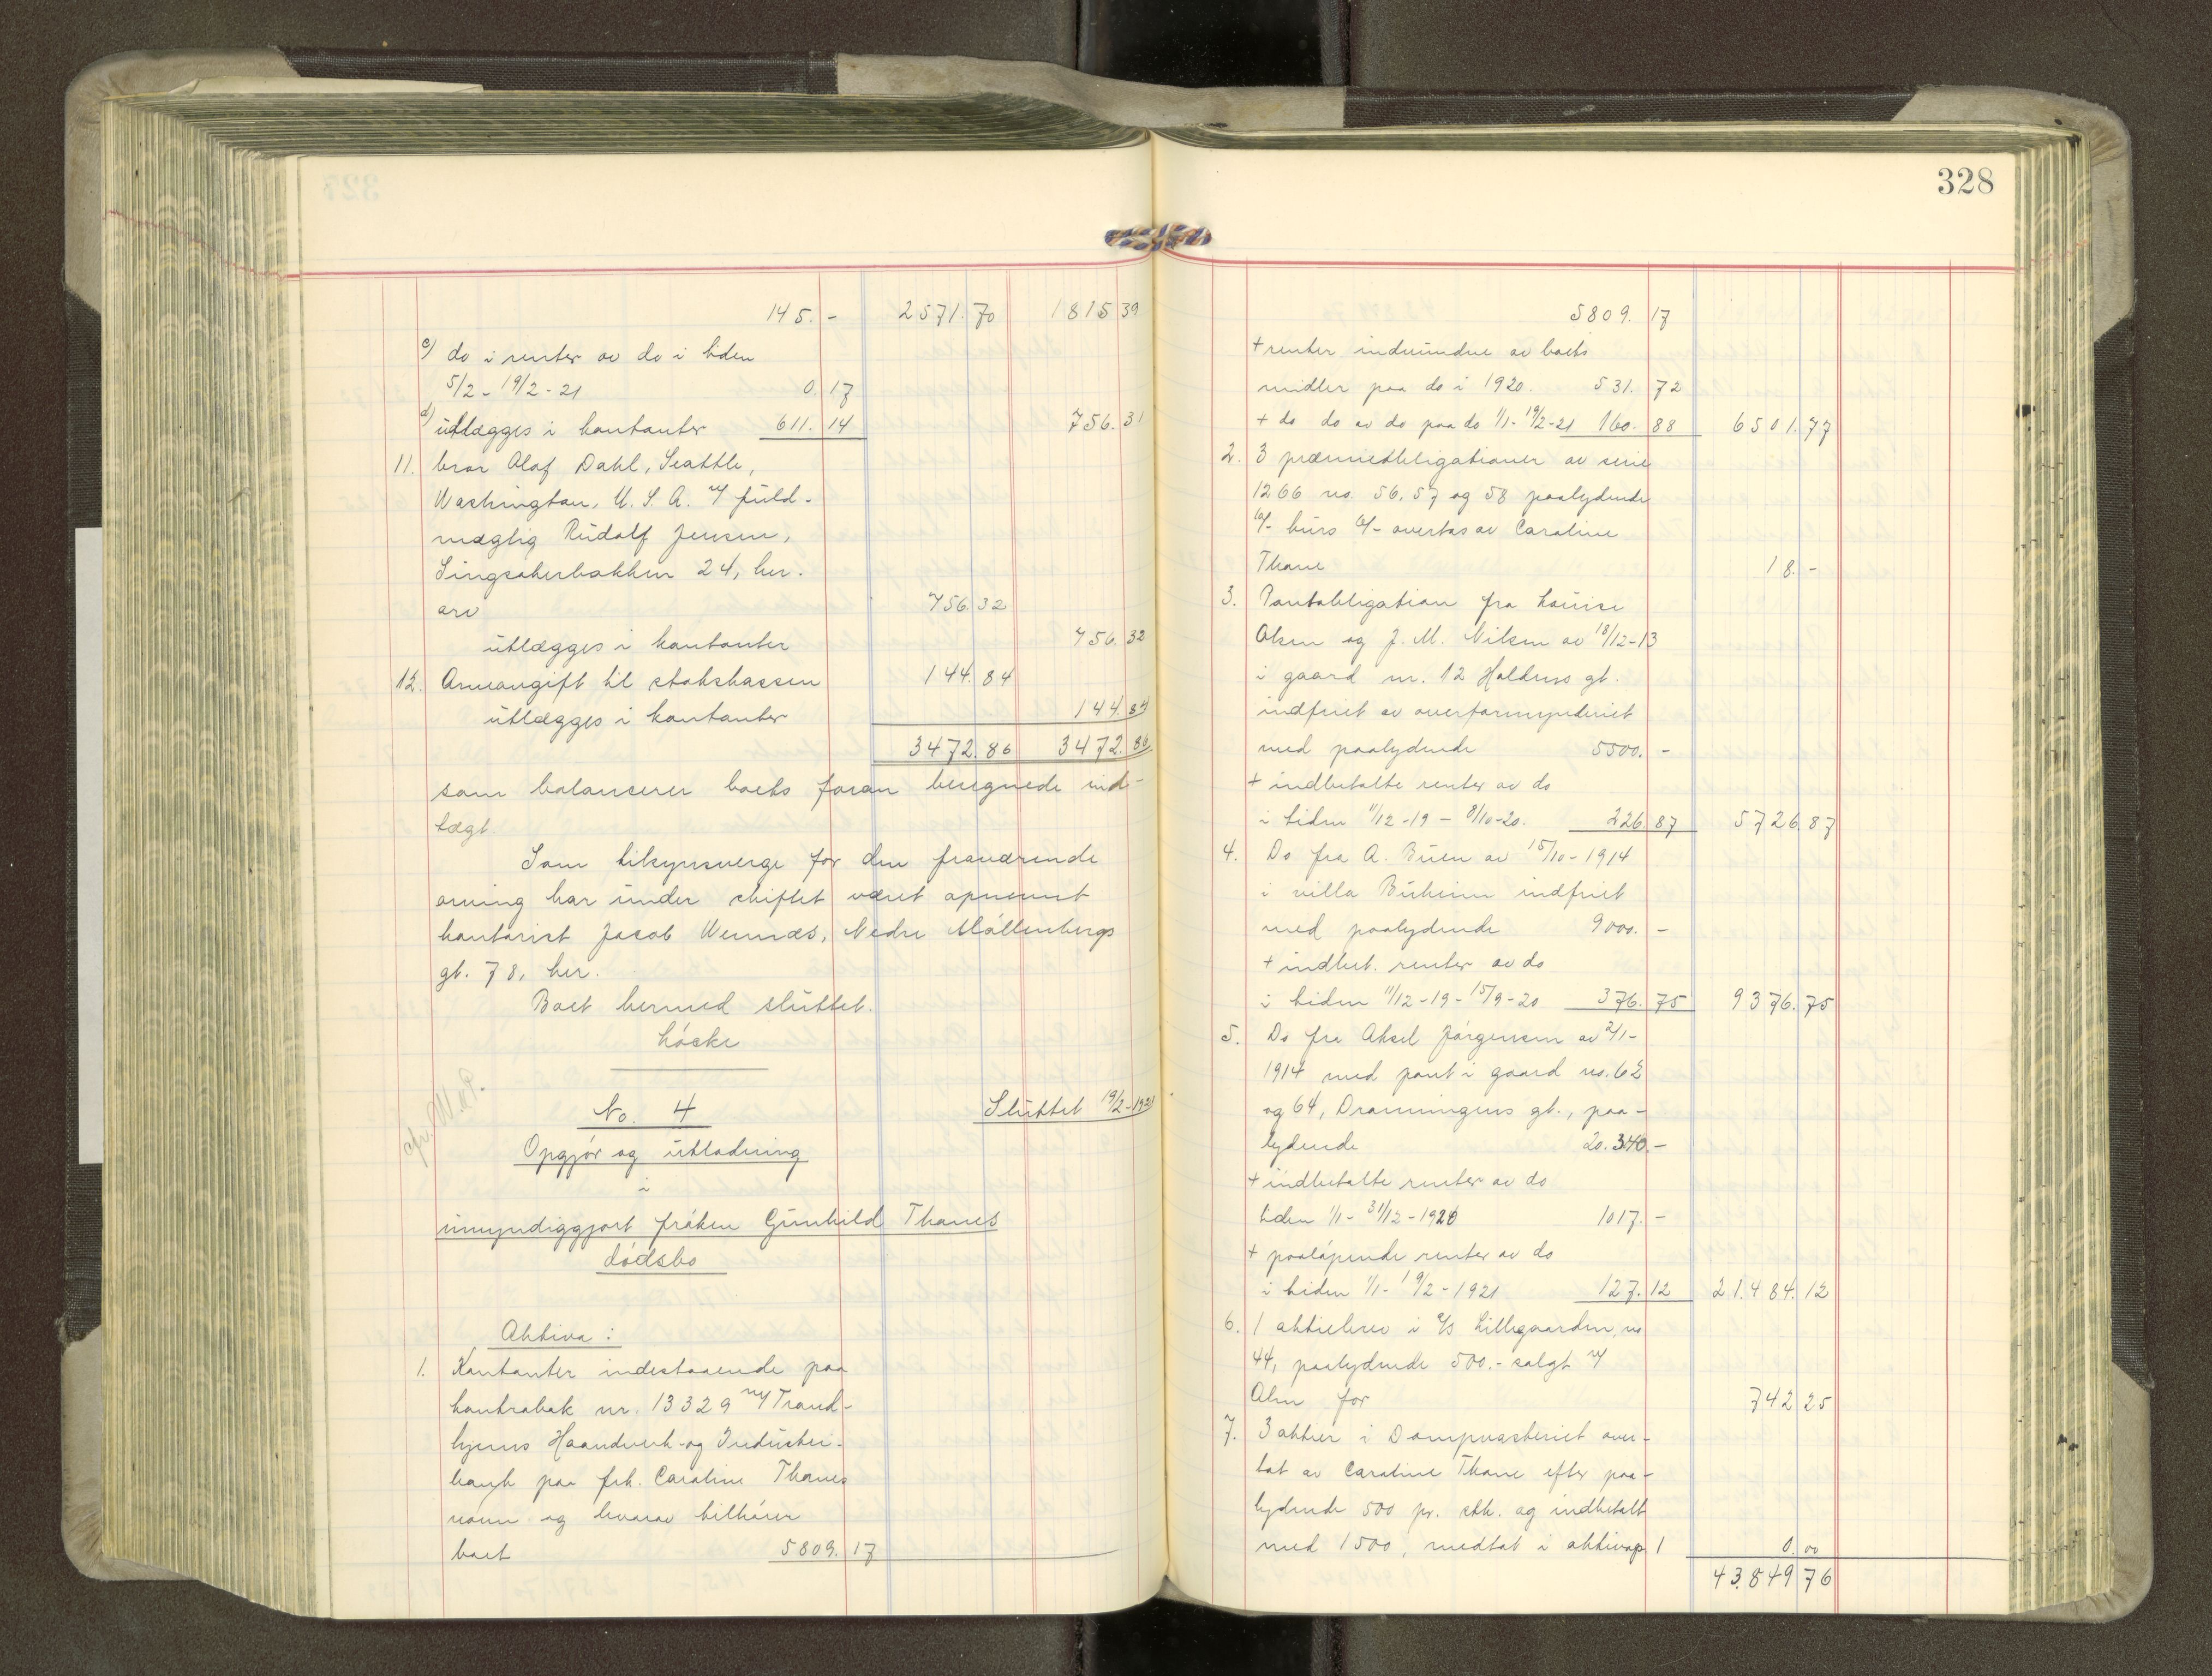 145. - 2571. 70 1815 39
c) do i renter av do i tiden
5/2 - 19/2 - 21 0. 17
d) utlægges i kontanter 611. 14 756. 31
11. bror Olaf Dahl, Seattle,
Washington, U. S. A. v/ fuld-
mægtig Rudolf Jensen,
Singsakerbakken 24, her.
arv 756. 32
utlægges i kontanter 756. 32
12. Arveavgift til statskassen 144. 84
utlægges i kontanter 144. 84
3472. 86 3472. 86
som balanserer boets foran beregnede ind-
tægt.
Som tilsynsverge for den fraværende
arving har under skiftet været opnævnt
kontorist Jacob Wennæs, Nedre Møllenbergs
gt. 78, her.
Boet hermed sluttet.
Løcke
No. 4 Sluttet 19/2-1921
Opgjør og utlodning
i
umyndiggjort frøken Gunhild Thanes
dødsbo
Aktiva:
1. Kontanter indestaaende paa
kontrabok nr. 13329 v/ Trond-
hjems Haandverk- og Industri-
bank paa frk. Caroline Thanes
navn og hvorav tilhører
boet 5809. 17
328
5809. 17
+ renter indvundne av boets
midler paa do i 1920. 531. 72
+ do do av do paa do 1/1 - 19/2 - 21 160. 88 6501. 77
2. 3 præmieobligationer av serie
1266 no. 56, 57 og 58 paalydende
6/- kurs 6/- overtas av Caroline
Thane 18. -
3. Pantobligation fra Louise
Olsen og J. M. Nilsen av 18/12-13
i gaard nr. 12 Holdens gt.
indfriet av overformynderiet
med paalydende 5500. -
+ indbetalte renter av do
i tiden 11/12 - 19 - 8/10 - 20. 226 87 5726. 87
4. Do fra A. Buen av 15/10 - 1914
i villa Buheim indfriet
med paalydende 9000. -
+ indbet. renter av do
i tiden 11/12 - 19 - 15/9 - 20 376. 75 9376. 75
5. Do fra Aksel Jørgensen av 2/1 -
1914 med pant i gaard no. 62
og 64, Dronningens gt., paa-
lydende 20. 340. -
+ indbetalte renter av do
tiden 1/1 - 31/12 - 1920 1017. -
+ paaløpende renter av do
i tiden 1/1 - 19/2 - 1921 127. 12 21. 484. 12
6. 1 aktiebrev i A/S Lillegaarden, no
44, paalydende 500.- solgt v/
Alm for 742 25
7. 3 aktier i Dampvaskeriet over-
tat av Caroline Thane efter paa-
lydende 500 pr. stk. og indbetalt
med 1500, medtat i aktivap 1 0. 00
43. 849 76